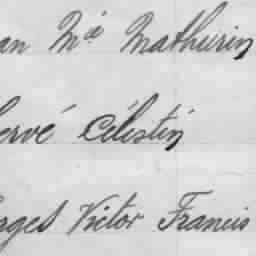 an Mie Mathurin
ervé Célestin
rges Victor Francis